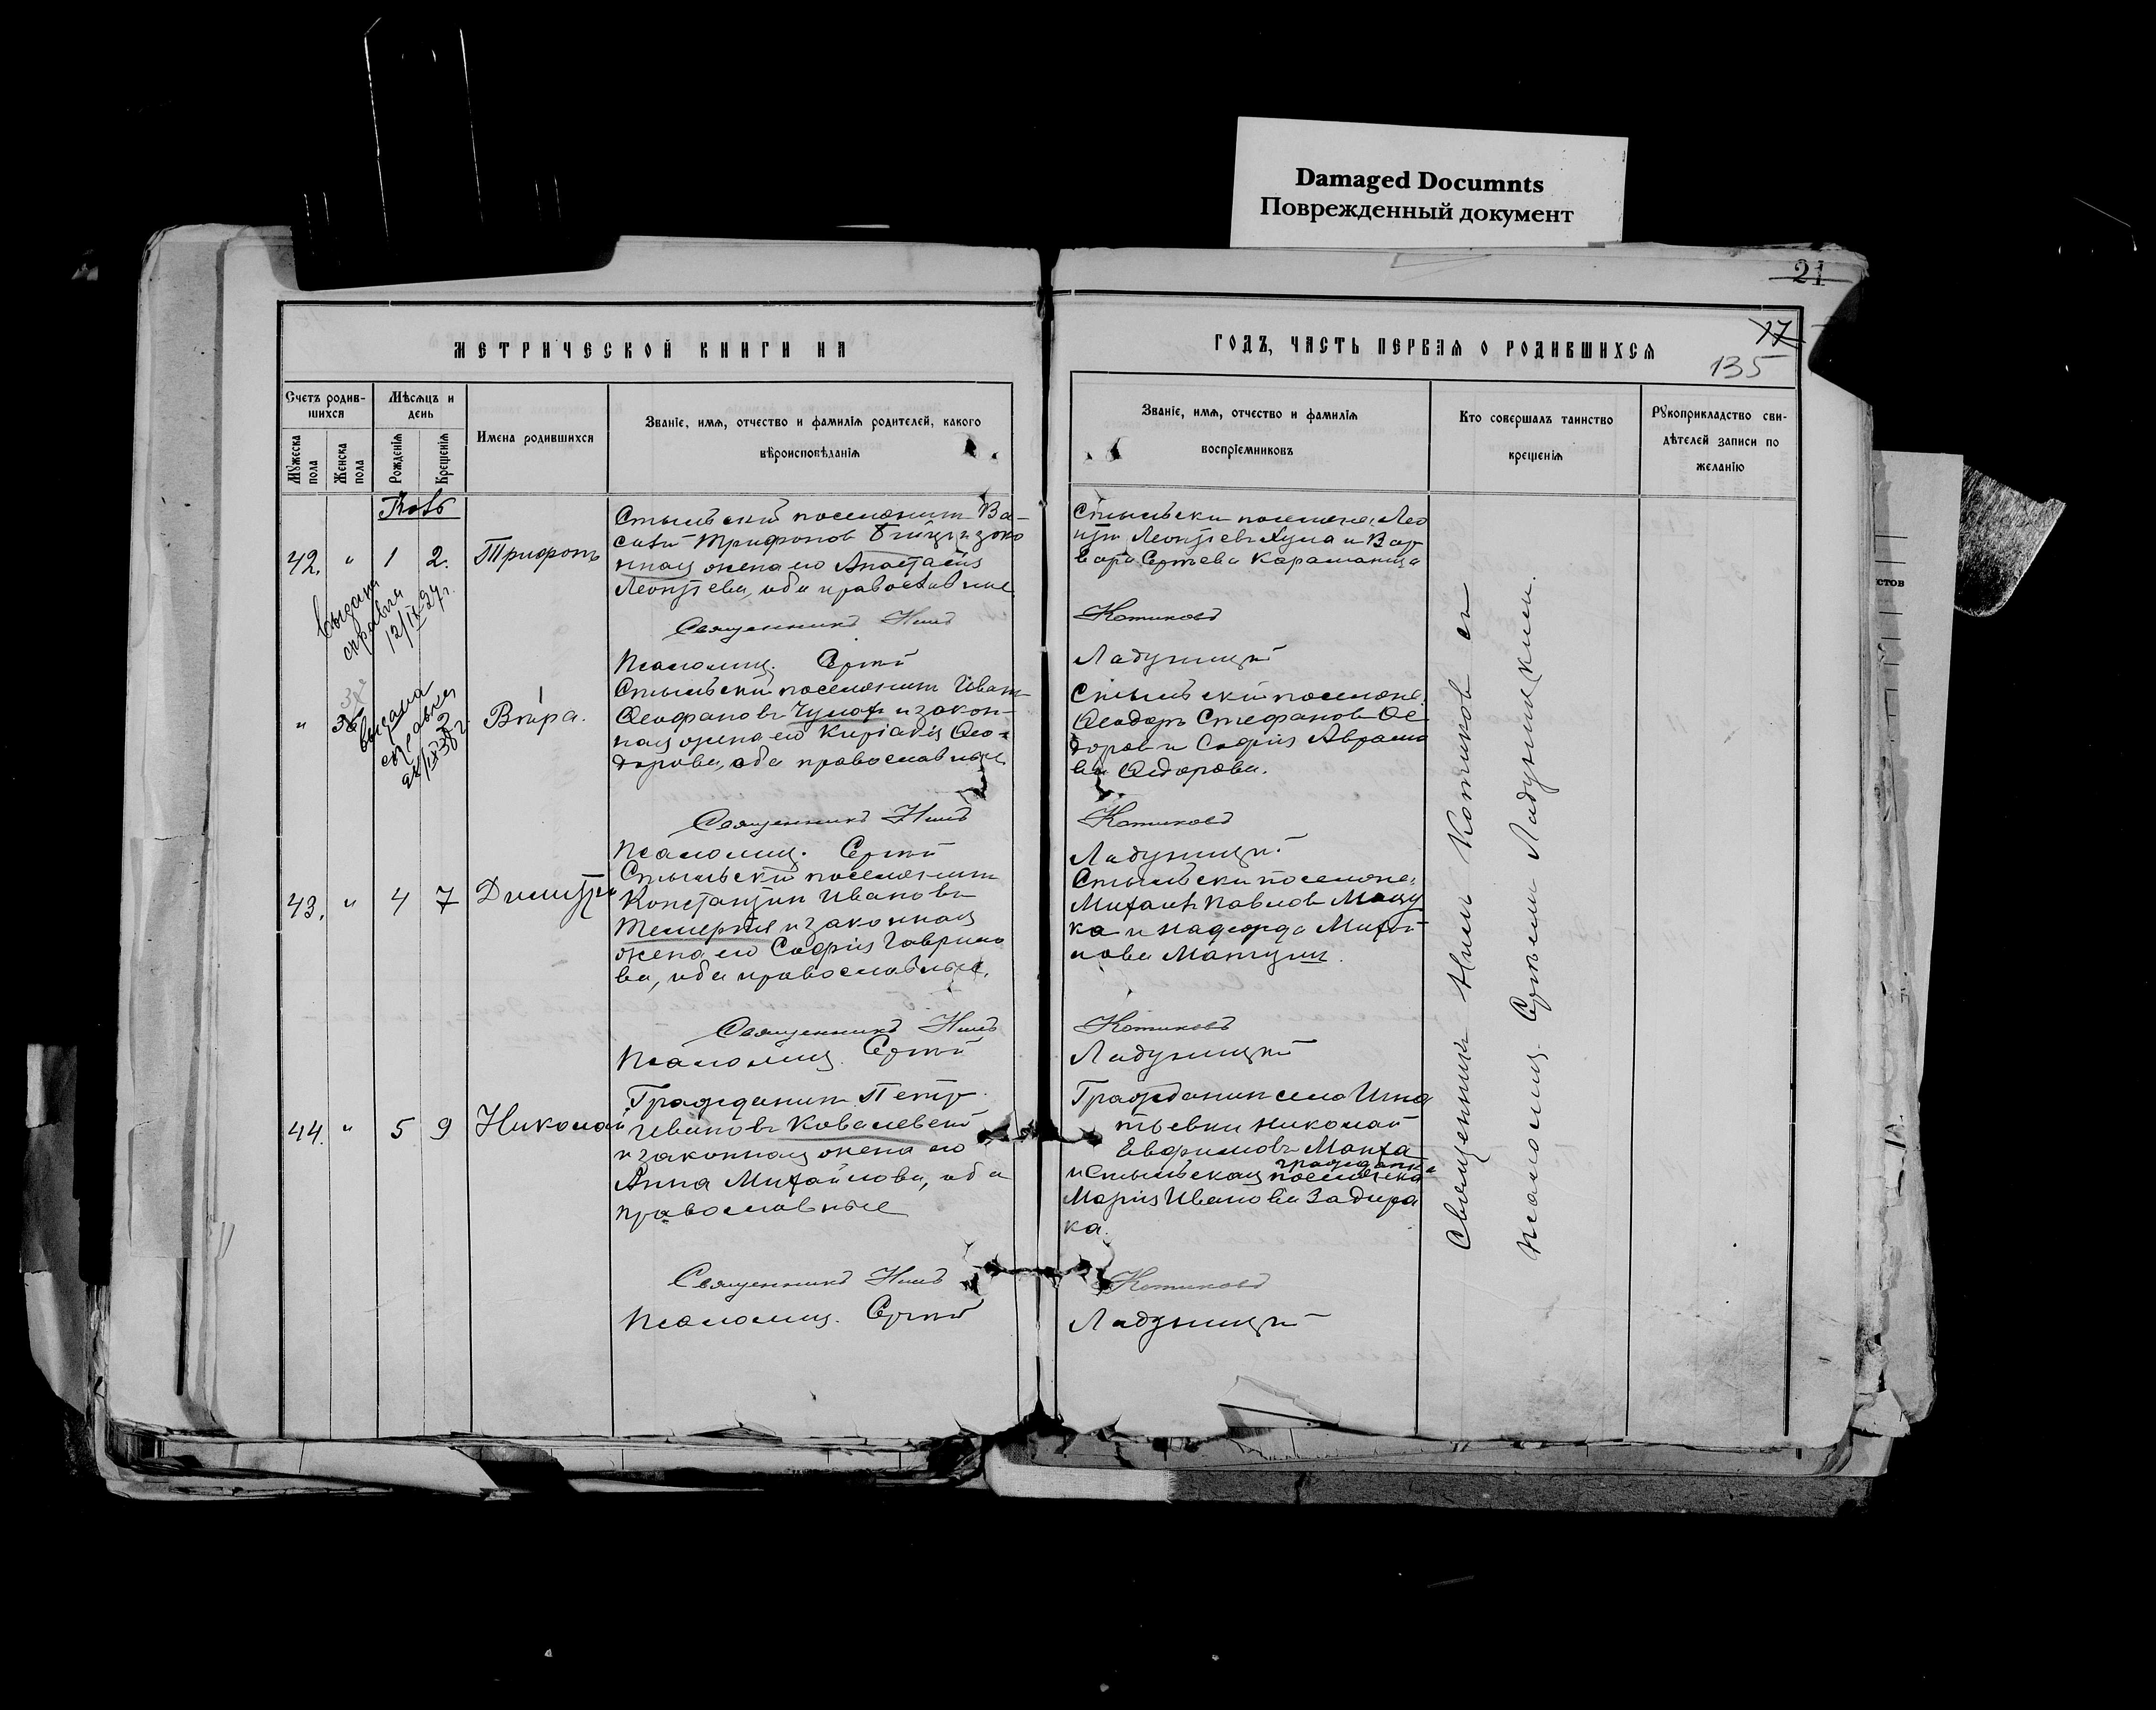 Damaged Documnts
Поврежденный документ
21
17
135
МЕТРИЧЕСКОЙ КНИГИ НА
ГОДЪ, ЧАСТЬ ПЕРВАЯ О РОДИВШИХСЯ
Счетъ родив-
шихся
Мужеска пола
Женска пола
Мѣсяцъ и
день
Рожденія
Крещенія
Имена родившихся
Званіе, имя, отчество и фамилія родителей, какого
вѣроисповѣданія
Званіе, имя, отчество и фамилія
воспріемниковъ
Кто совершалъ таинство
крещенія
Рукоприкладство сви-
дѣтелей записи по
желанію
42. " 1 2. Трифонъ
Стыльскій поселянин Ва-
силій Трифонов и зако
нная жена его Анастасія
Леонтіева, оба православные
Священникъ Нилъ
Псаломщ. Сергій
Стыльски поселяне: Лео
нтій Леонтіевъ и Вар
вара Сергѣева Караманица
Котиковъ
Ладужицкій
выдана
справка
12/IX 27г.
" Вѣра.
выдана
справка
Стыльскій поселянин Иван
Феофановъ и закон-
ная жена его Киріакія Фео-
дорова, оба православные
Священникъ Нилъ
Псаломщ. Сергій
Стыльскій поселяне
Феодоръ Стефанов Фе
доров и Софія Авраамо
ва Федорова.
Котиковъ
Ладужицкій
43. " 4 7 Димитрій
Стыльскій поселянин
Константин Ивановъ
Темертея и законная
жена его Софія Гаврило
ва, оба православные.
Священникъ Нилъ
Псаломщ. Сергій
Стыльски поселяне:
Михаилъ Павлов Мацу
ка и Надежда Михай
лова
Котиковъ
Ладужицкій
44. " 5 9 Николай
Гражданин Петр
Ивановъ Ковалевскій
и законная жена его
Анна Михайлова, оба
православные
Священникъ Нилъ
Псаломщ. Сергій
Гражданин села Игна
тьевки Николай
Евфимовъ Манха
гражданка
и Стыльская поселянка
Марія Иванова Задира
ка.
Котиковъ
Ладужицкій
Священникъ Нилъ Котиков съ
псаломщ. Сергѣем Ладужицким.